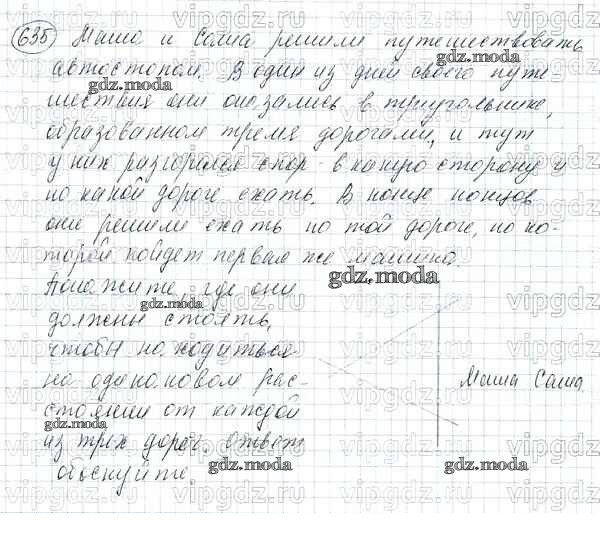 635 Маша и Саша решили путешествовать
автостопом. В один из дней своего путе-
шествия они оказались в треугольнике,
образованном тремя дорогами, и тут
у них разгорелся спор - в какую сторону и
по какой дороге ехать. В конце концов
они решили ехать по той дороге, по ко-
торой пойдет первая же машина.
Покажите, где они
должны стоять,
чтобы находиться
на одинаковом рас-
стоянии от каждой
из трех дорог. Ответ
обоснуйте.
Маша Саша
gdz.moda
gdz.moda
gdz.moda
gdz.moda
gdz.moda
gdz.moda
gdz.moda
gdz.moda